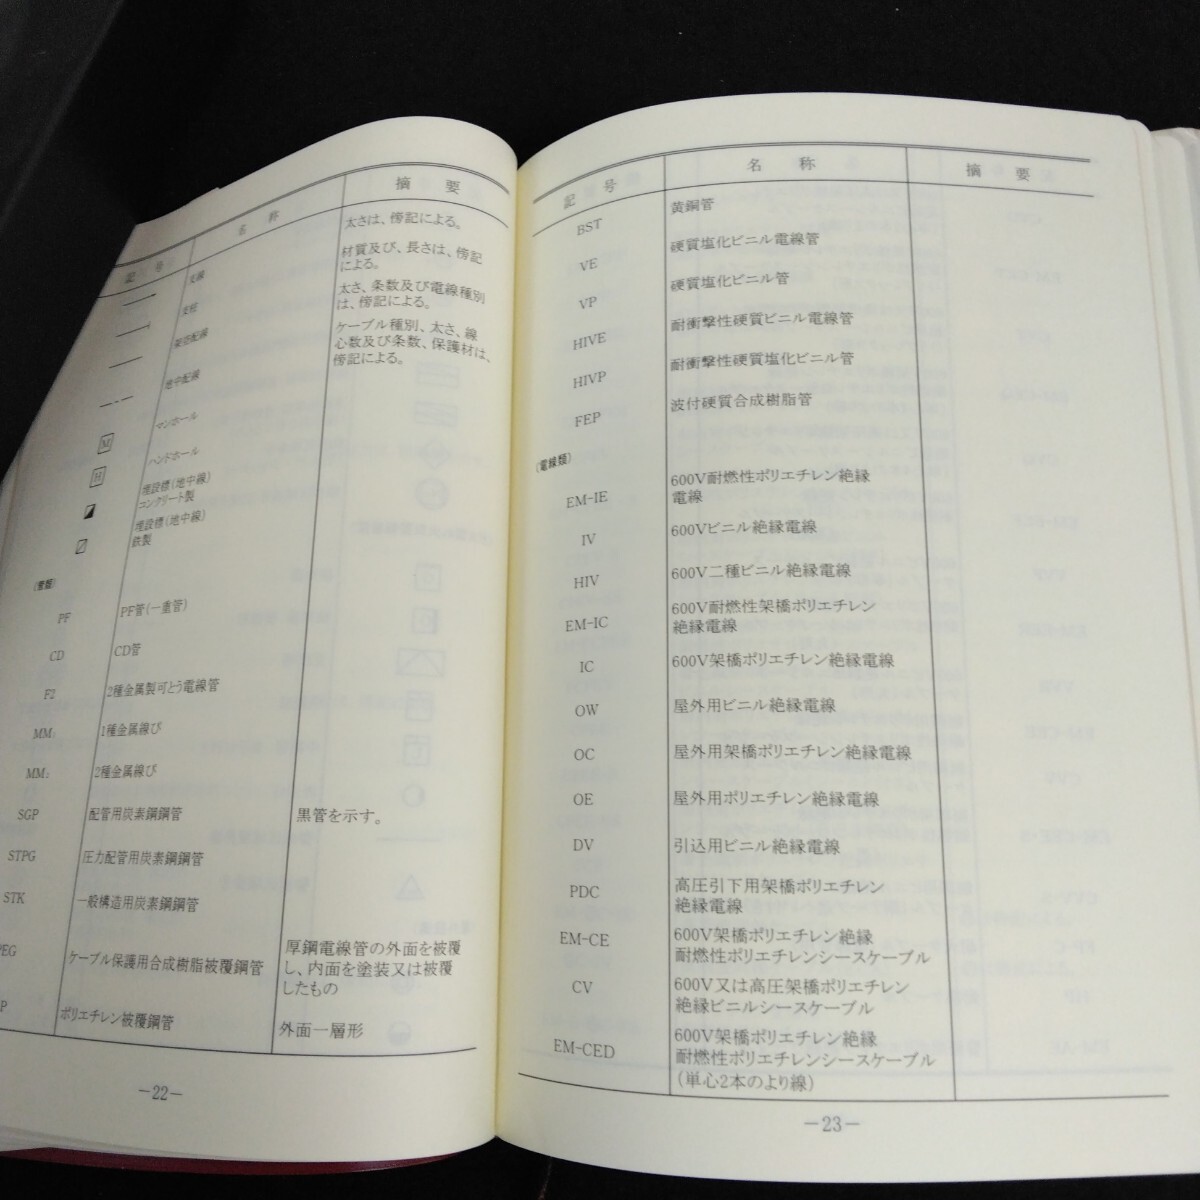 記 号 名 称 摘 要
支線 太さは、傍記による。
支柱 材質及び、長さは、傍記
による。
架空配線 太さ、条数及び電線種別
は、傍記による。
地中配線 ケーブル種別、太さ、線
心数及び条数、保護材は、
傍記による。
M マンホール
H ハンドホール
埋設標(地中線)
コンクリート製
埋設標(地中線)
鉄製
(管類)
PF PF管(一重管)
CD CD管
F2 2種金属製可とう電線管
MM₁ 1種金属線ぴ
MM₂ 2種金属線ぴ
SGP 配管用炭素鋼鋼管 黒管を示す。
STPG 圧力配管用炭素鋼鋼管
STK 一般構造用炭素鋼鋼管
PEG ケーブル保護用合成樹脂被覆鋼管 厚鋼電線管の外面を被覆
し、内面を塗装又は被覆
したもの
P ポリエチレン被覆鋼管 外面一層形
−22−
記 号 名 称 摘 要
BST 黄銅管
VE 硬質塩化ビニル電線管
VP 硬質塩化ビニル管
HIVE 耐衝撃性硬質ビニル電線管
HIVP 耐衝撃性硬質塩化ビニル管
FEP 波付硬質合成樹脂管
(電線類)
EM-IE 600V耐燃性ポリエチレン絶縁
電線
IV 600Vビニル絶縁電線
HIV 600V二種ビニル絶縁電線
EM-IC 600V耐燃性架橋ポリエチレン
絶縁電線
IC 600V架橋ポリエチレン絶縁電線
OW 屋外用ビニル絶縁電線
OC 屋外用架橋ポリエチレン絶縁電線
OE 屋外用ポリエチレン絶縁電線
DV 引込用ビニル絶縁電線
PDC 高圧引下用架橋ポリエチレン
絶縁電線
EM-CE 600V架橋ポリエチレン絶縁
耐燃性ポリエチレンシースケーブル
CV 600V又は高圧架橋ポリエチレン
絶縁ビニルシースケーブル
EM-CED 600V架橋ポリエチレン絶縁
耐燃性ポリエチレンシースケーブル
(単心2本のより線)
−23−